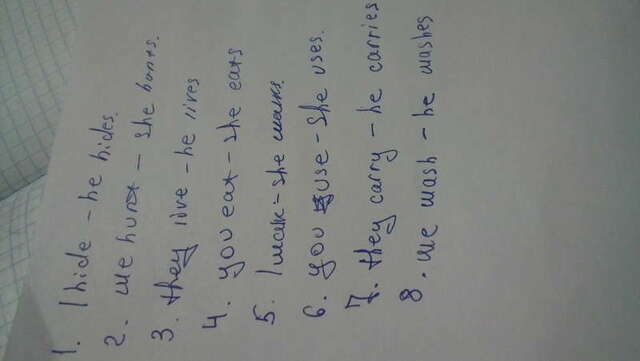 1. I hide - he hides.
2. we hunt - she hunts.
3. they live - he lives
4. you eat - she eats
5. I walk - she walks.
6. you use - she uses.
7. they carry - he carries
8. we wash - he washes